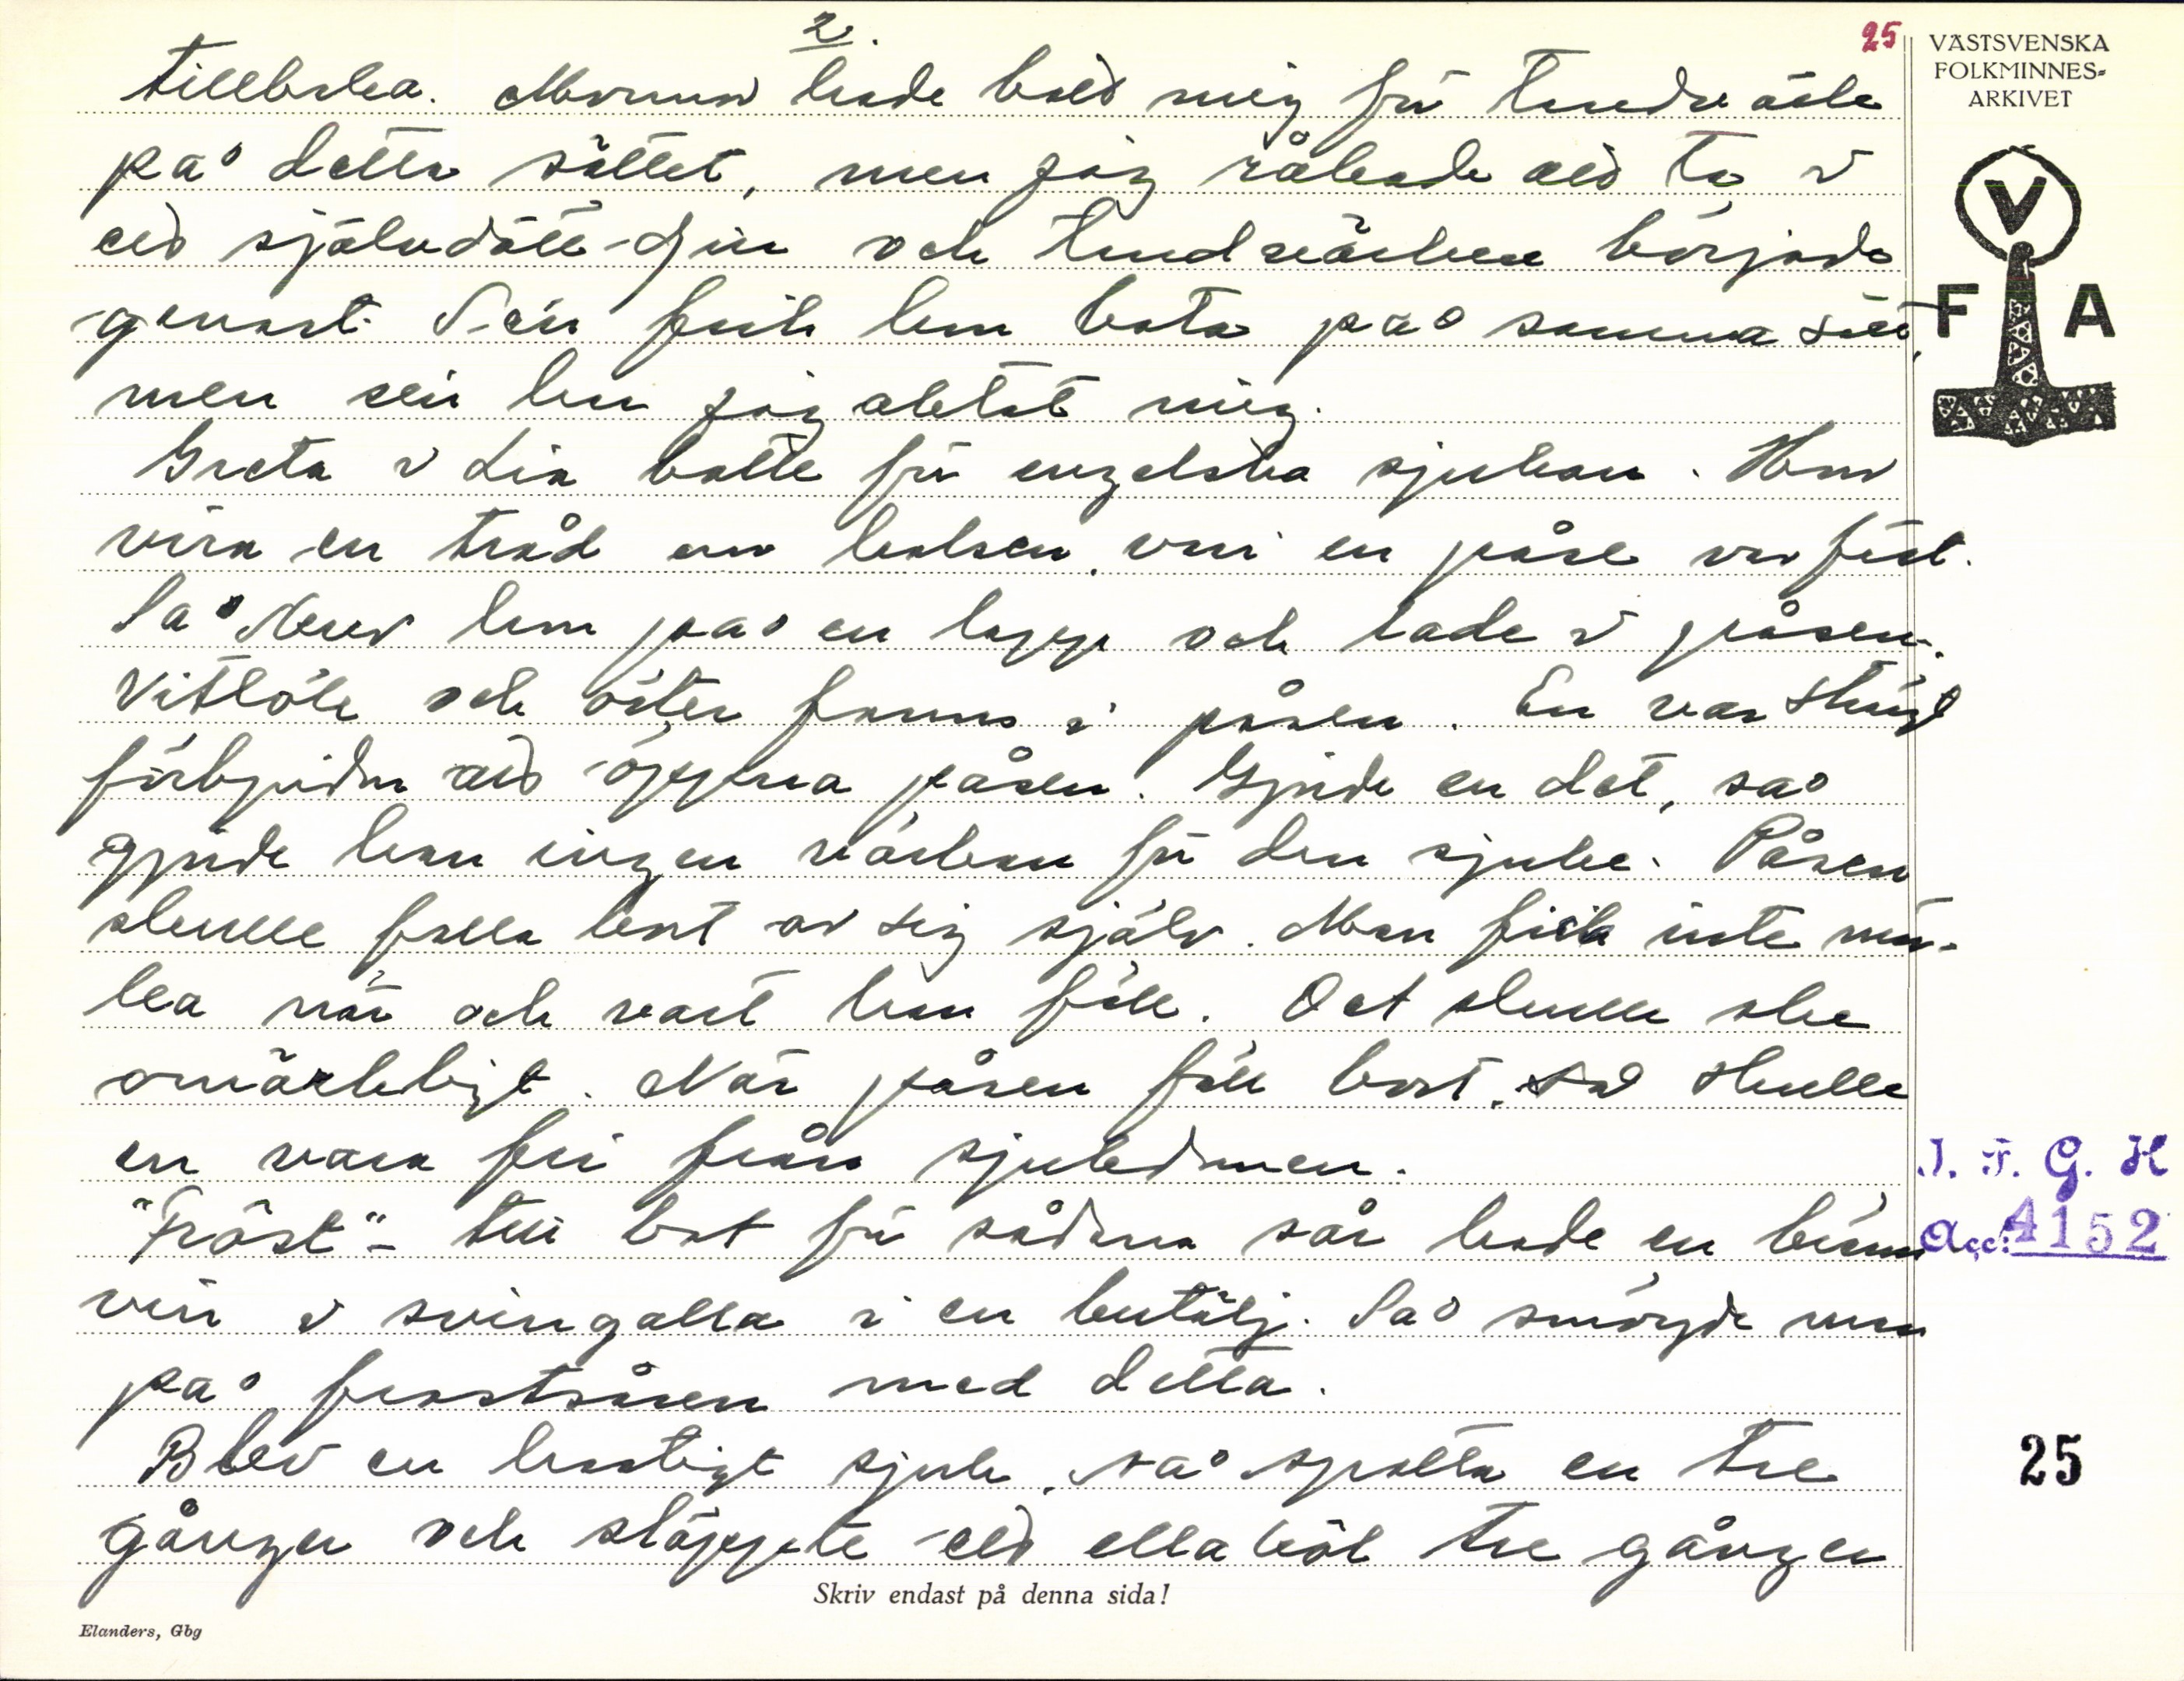 2.
25
VÄSTSVENSKA
FOLKMINNES-
ARKIVET
tillbaka. Mormor hade bott mig för tandvärk
på detta sättet, men jag råkade att ta i
ett självdött djur och tandvärken började
genast. Sen fick hon bota på samma sätt,
men sen har jag aktat mig.
V
F A
Greta i Lia botte för engelska sjukan. Hon
vira en tråd om halsen, vari en påse var fäst.
Så skrev hon på en lapp och lade i påsen.
Vitlök och örter fanns i påsen. En var strängt
förbjuden att öppna påsen. Gjorde en det, så
gjorde han ingen värkan för den sjuke. Påsen
skulle falla bort av sig själv. Man fick inte mär-
ka när och vart han föll. Det skulle ske
omärkligt. När påsen föll bort, så skulle
en vara fri från sjukdomen.
"Fröst" - till bot för sådana sår hade en bränn
vin i svingalla i en butälj. Så smörjde man
på frostsåren med detta.
Blev en hastigt sjuk, så spotta en tre
gånger och släppte eld ella kol tre gånger
I. F. G. H
Acc: 4152
25
Skriv endast på denna sida!
Elanders, Gbg